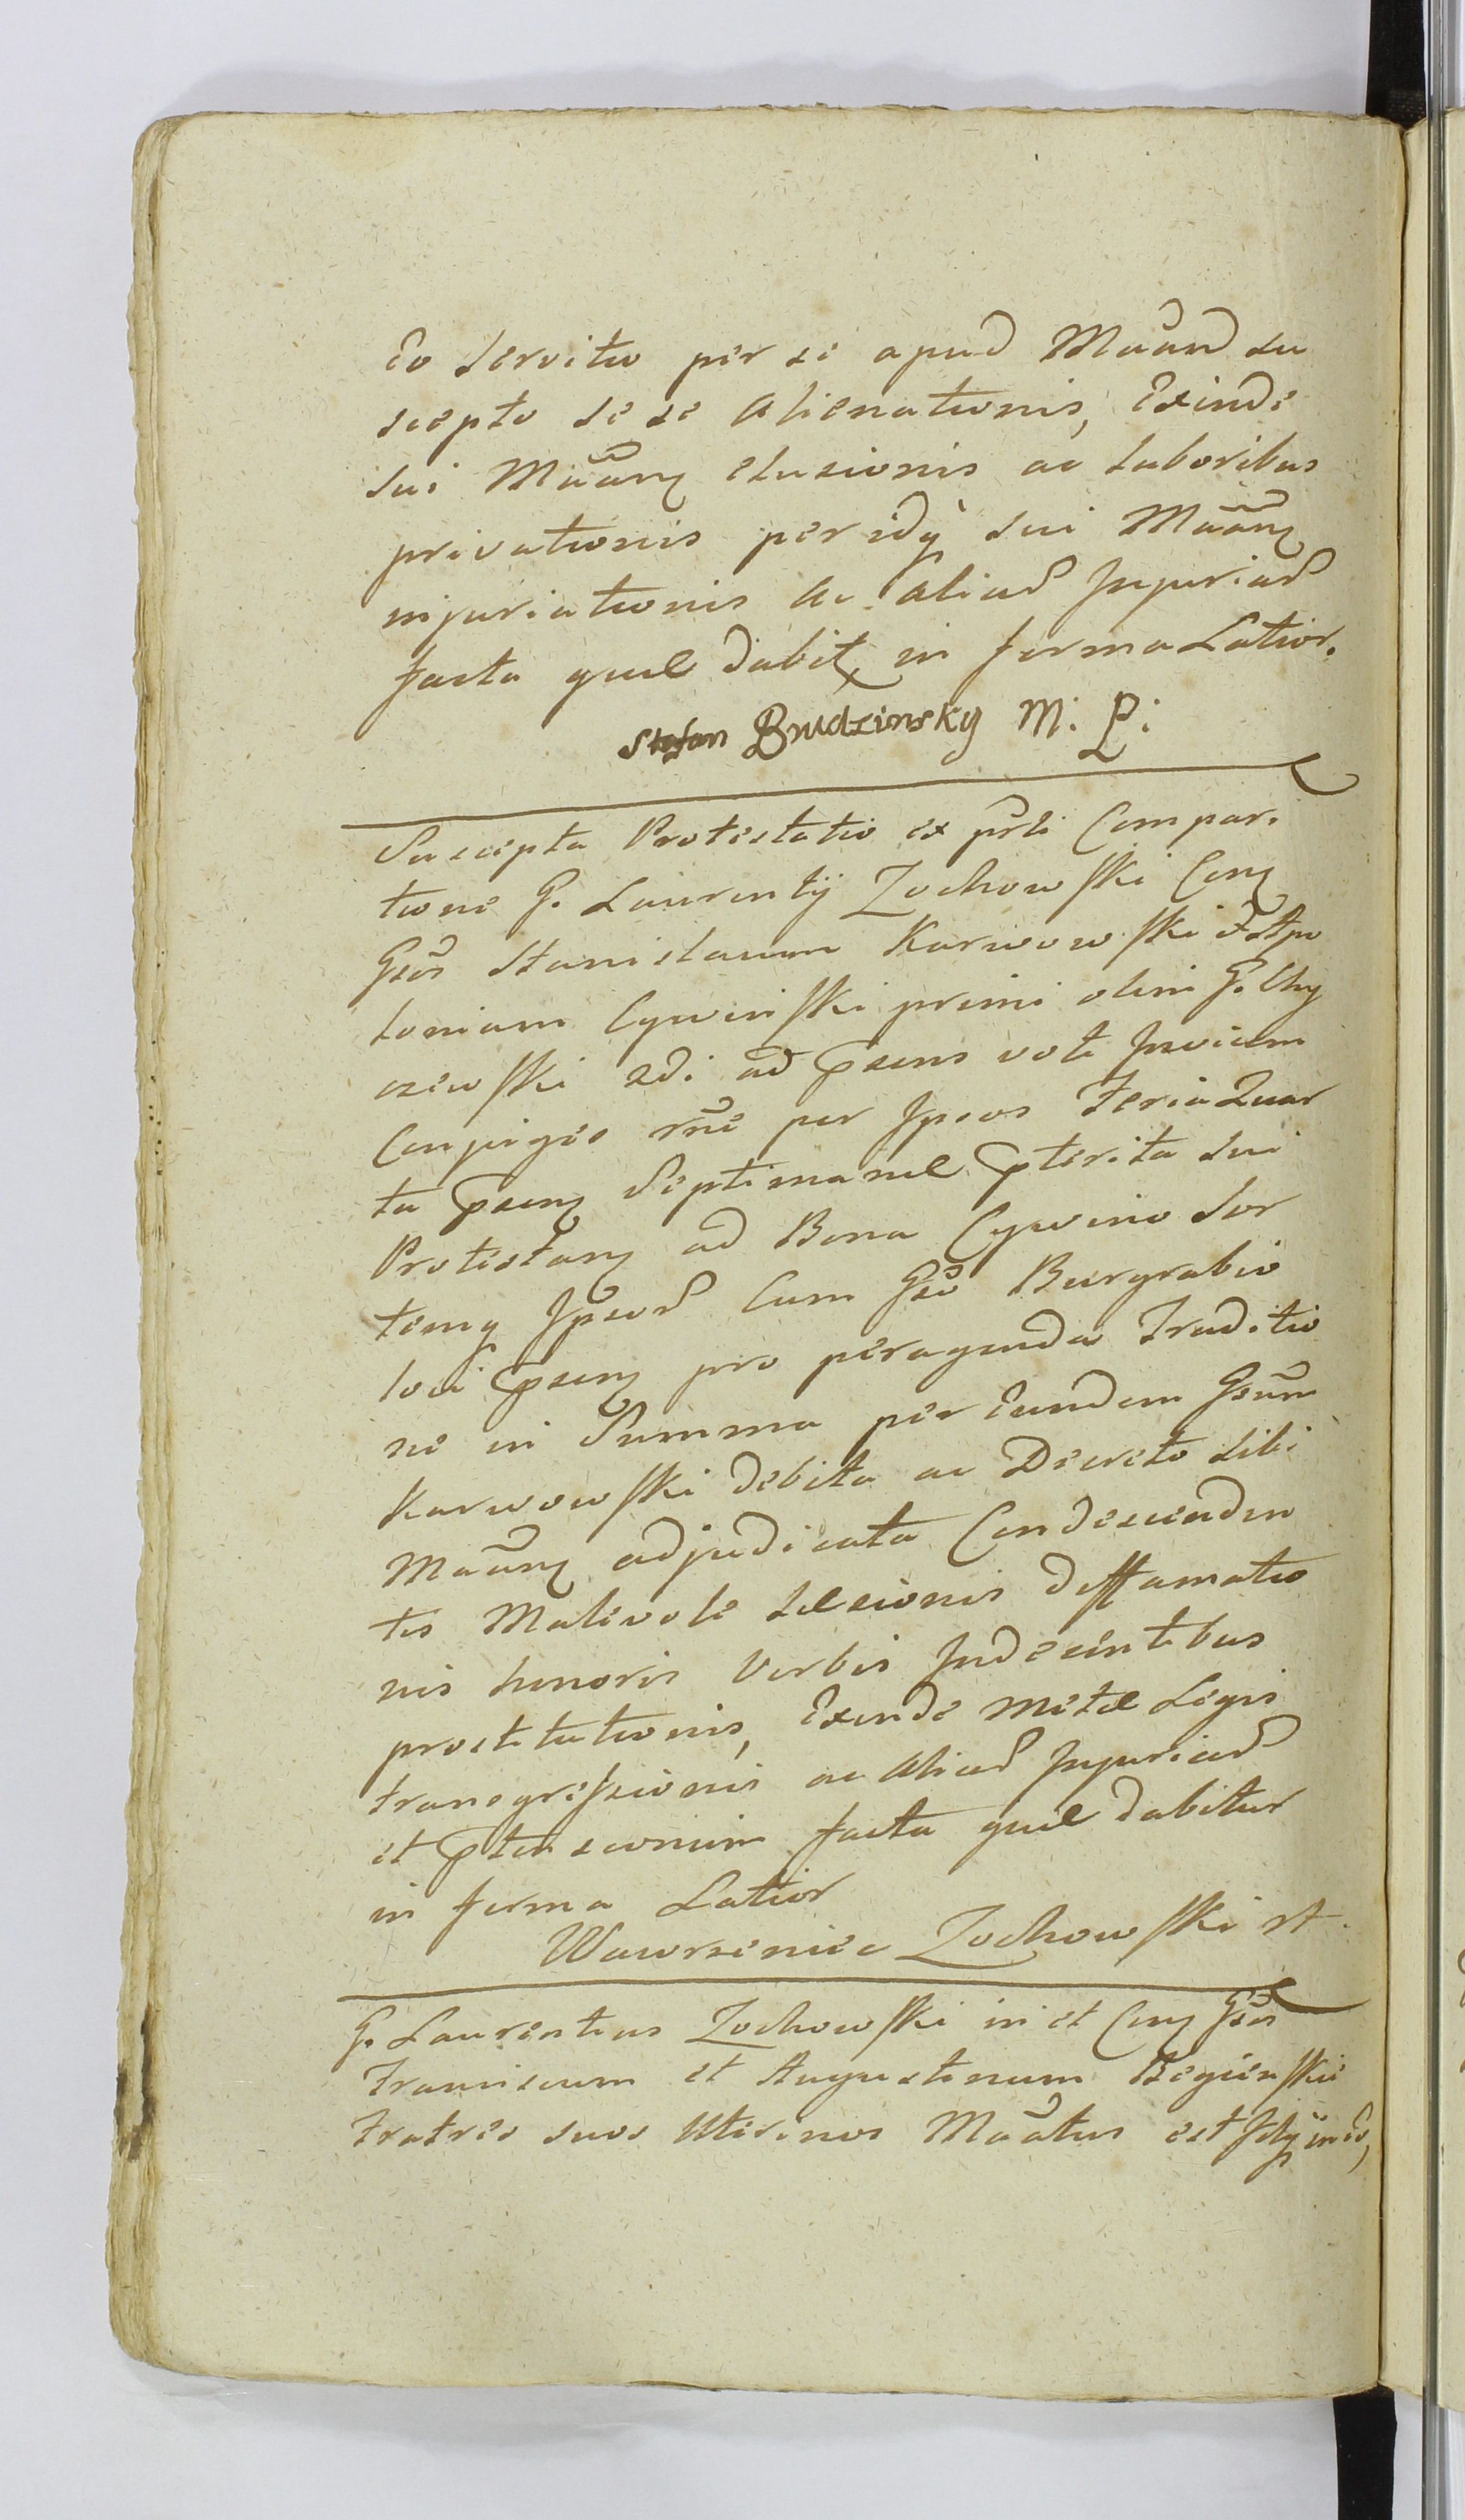 Eo Servitio per se apud Mãand su
scepto se se Alienationis, Exinde
sui Mãanꝫ elusionis ac laboribus
privationis per idq sui Mãanꝫ
injuriationis Ac Aliaꝝ Injuriaꝝ
facta quæ dabit, in forma Latior.
Stefan Brudzinsky M: P:
Suscepta Protestatio ex prti Compar.
tione G. Laurentij Zochowski Conꝫ
Gsos Stanislaum Karwowski et Apo
loniam Cywinski primi olim G. Chy
czewski 2di ad psens voti Invicem
Conjuges rne per Ipsos Feria Quar
ta psenꝫ Septimanæ pterita sui
Protestanꝫ ad Bona Cywino Sor
temq Ipsoꝝ Cum Gso Burgrabio
loci psenꝫ pro peragenda Traditio
ne in Summa per Eundem Gsum
Karwowski debita ac Decreto sibi
Mãanꝫ adjudicata Condescenden
tis Malevole læsionis deffamatio
nis honoris Verbis Indecentibus
prostitutionis, Exinde metæ Legis
transgressionis ac Aliaꝝ Injuriaꝝ
et ptensionum facta quæ dabitur
in forma Latior
Wawrzeniec Zochowski
G. Laurentius Zochowski in et Conꝫ Gsos
Franciscum et Augustinum Bęgienskie
Fratres suos Uterinos Mãatus est